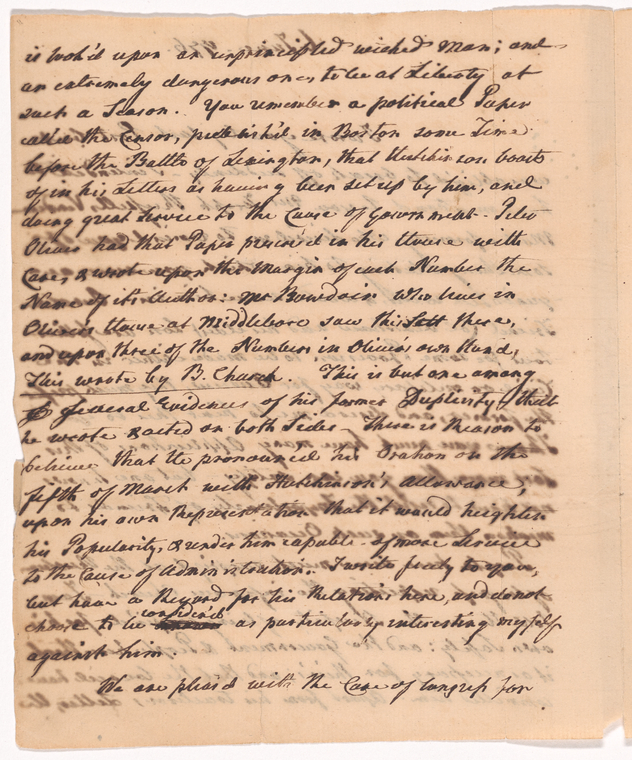 is look'd upon an unprincipled wicked Man; and
an extremely dangerous one, to be at Liberty at
such a Season. You remember a political Paper
called the Censor, publish'd in Boston some Time
before the Battle of Lexington, that Hutchinson boasts
of in his Letters as having been set up by him, and
doing great Service to the Cause of Government. Peter
Oliver had that Paper preserv'd in his House with
Care, & wrote upon the Margin of each Number the
Name of its Author: Mr Bowdoin who lives in
Oliver's House at Middleboro saw this Sett there,
and upon three of the Numbers in Oliver's own Hand,
This wrote by B. Church. This is but one among
several Evidences of his former Duplicity, & that
he wrote & acted on both Sides. There is Reason to
believe that He pronounced his Oration on the
fifth of March with Hutchinson's Allowance,
upon his own Representation that it would heighten
his Popularity, & render him capable of more Service
to the Cause of Administration. I write freely to you,
but have a Regard for his Relations here, and do not
choose to be considerd as particularly interesting myself
against him.
We are pleas'd with the Care of Congress for